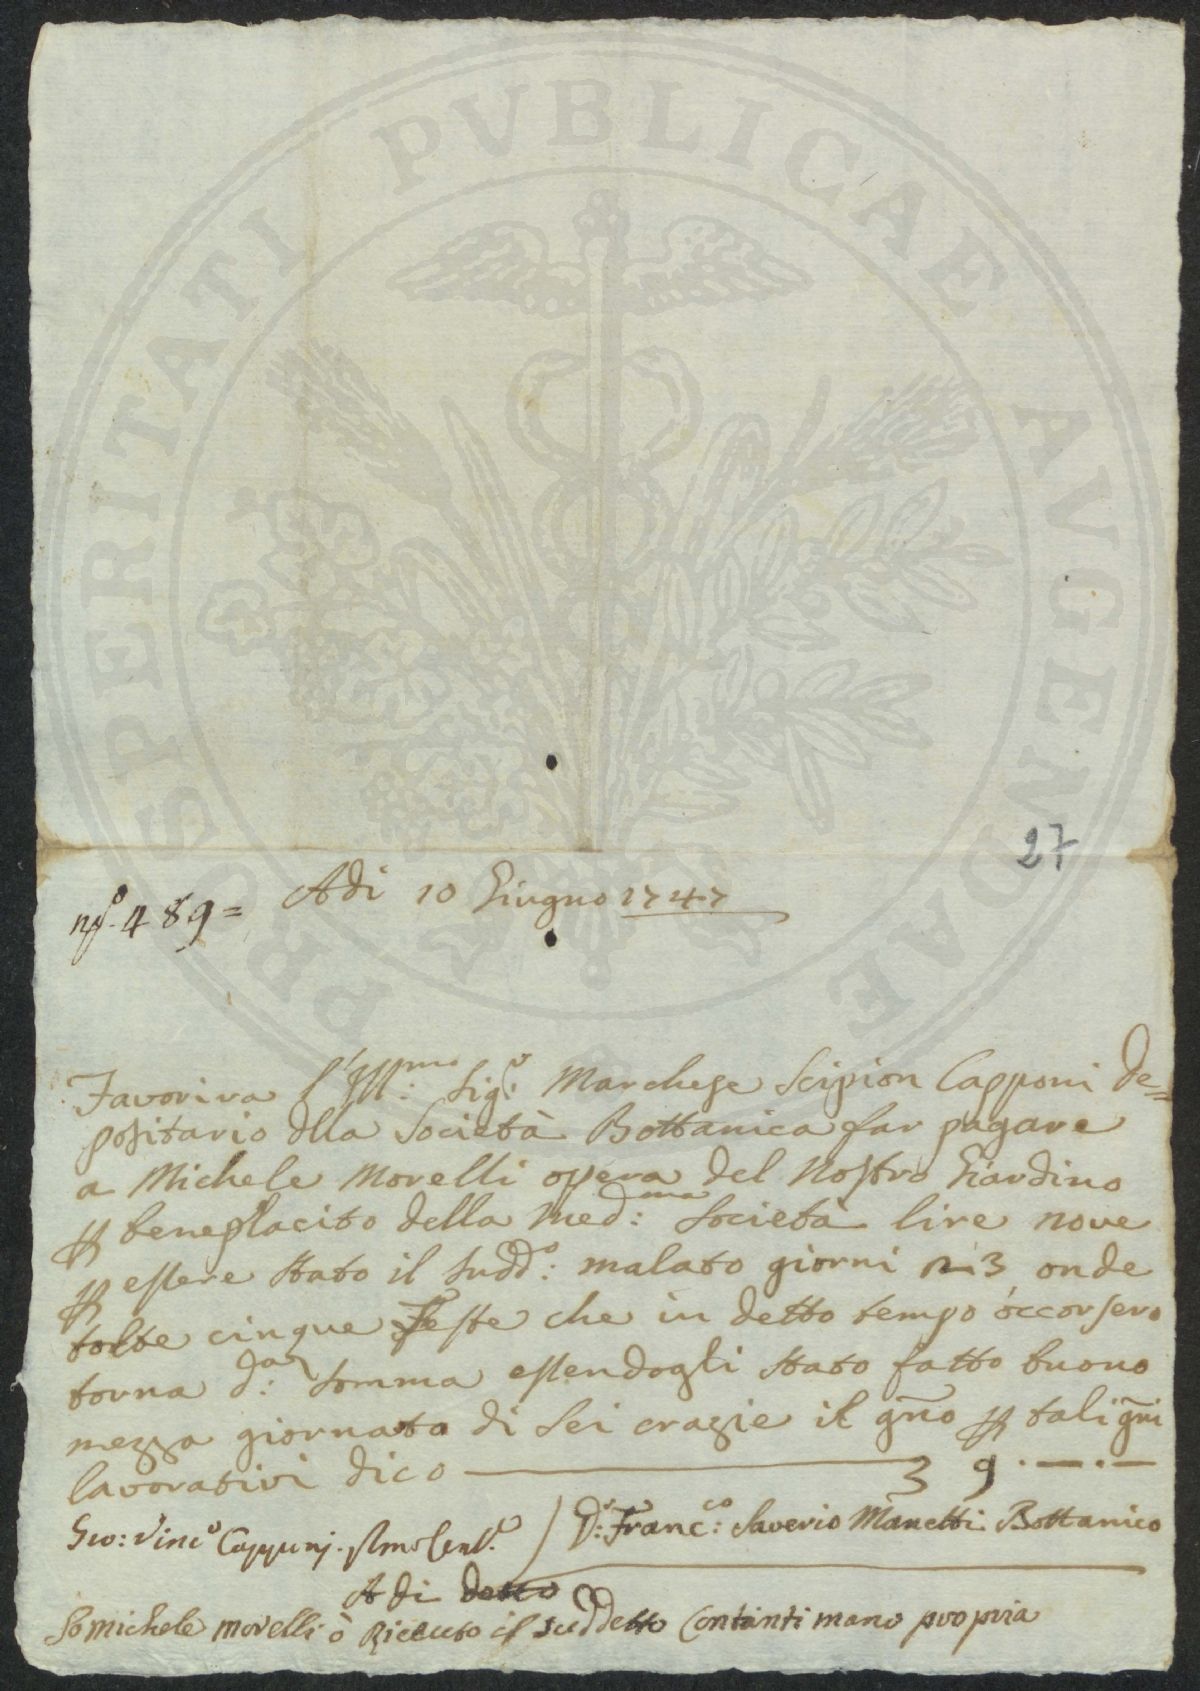 PROSPERITATI PVBLICAE AVGENDAE
27
nº. 489 =
Adi 10 Giugno 1747
Favorira l'Ill:mo Sigr: Marchese Scipion Capponi de=
positario dlla Società Bottanica far pagare
a Michele Morelli opera del Nostro Giardino
p beneplacito della Med:ma Società lire nove
p essere stato il sudd:o malato giorni 23 onde
tolte cinque Feste che in detto tempo occorsero
torna d:a somma essendogli stato fatto buono
mezza giornata di sei crazie il gno p tali gni
lavorativi dico 9.—.—
Gio: Vinc:o Capponi
Dr: Franc:co Saverio Manetti Bottanico
Adi detto
Io Michele Morelli ò Riceuto il suddetto Contanti mano propria